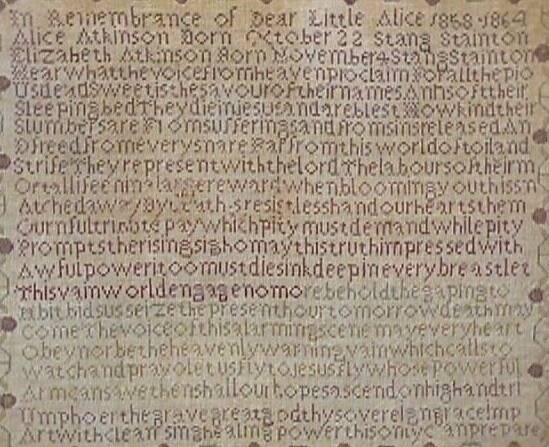 In Remembrance of Dear Little Alice 1858-1864
Alice Atkinson Born October 22 Stang Stainton
Elizabeth Atkinson Born November 4 Stang Stainton
HearwhatthevoicefromheavenproclaimForallthepio
UsdeadSweetisthesavouroftheirnamesAndsofttheir
SleepingbedTheydieinjesusandareblestHowkindtheir
SlumbersareFromsufferingsandfromsinsreleasedAn
DfreedfromeverysnareFarfromthisworldoftoiland
StrifeTheyrepresentwiththelordThelaboursoftheirm
Ortallifeeninalargerewardwhenbloomingyouthissn
AtchedawayByDeathsresistlesshandourheartsthem
Ournfultributepaywhichpitymustdemandwhilepity
Promptstherisingsighomaythistruthimpressedwith
Awfulpoweritoomustdiesinkdeepineverybreastlet
Thisvainworldengagenomorebeholdthegapingto
mbitbidsusseizethepresenthourtomorrowdeathmay
ComeThevoiceofthisalarmingscenemayeveryheart
Obeynorbetheheavenlywarningvainwhichcallsto
watchandprayoletusflytojesusflywhosepowerful
Armcansavethenshallourhopesascendonhighandtri
Umphoerthegravegreatgodthysovereigngraceimp
Artwithcleansinghealingpowerthisonlycanprepare